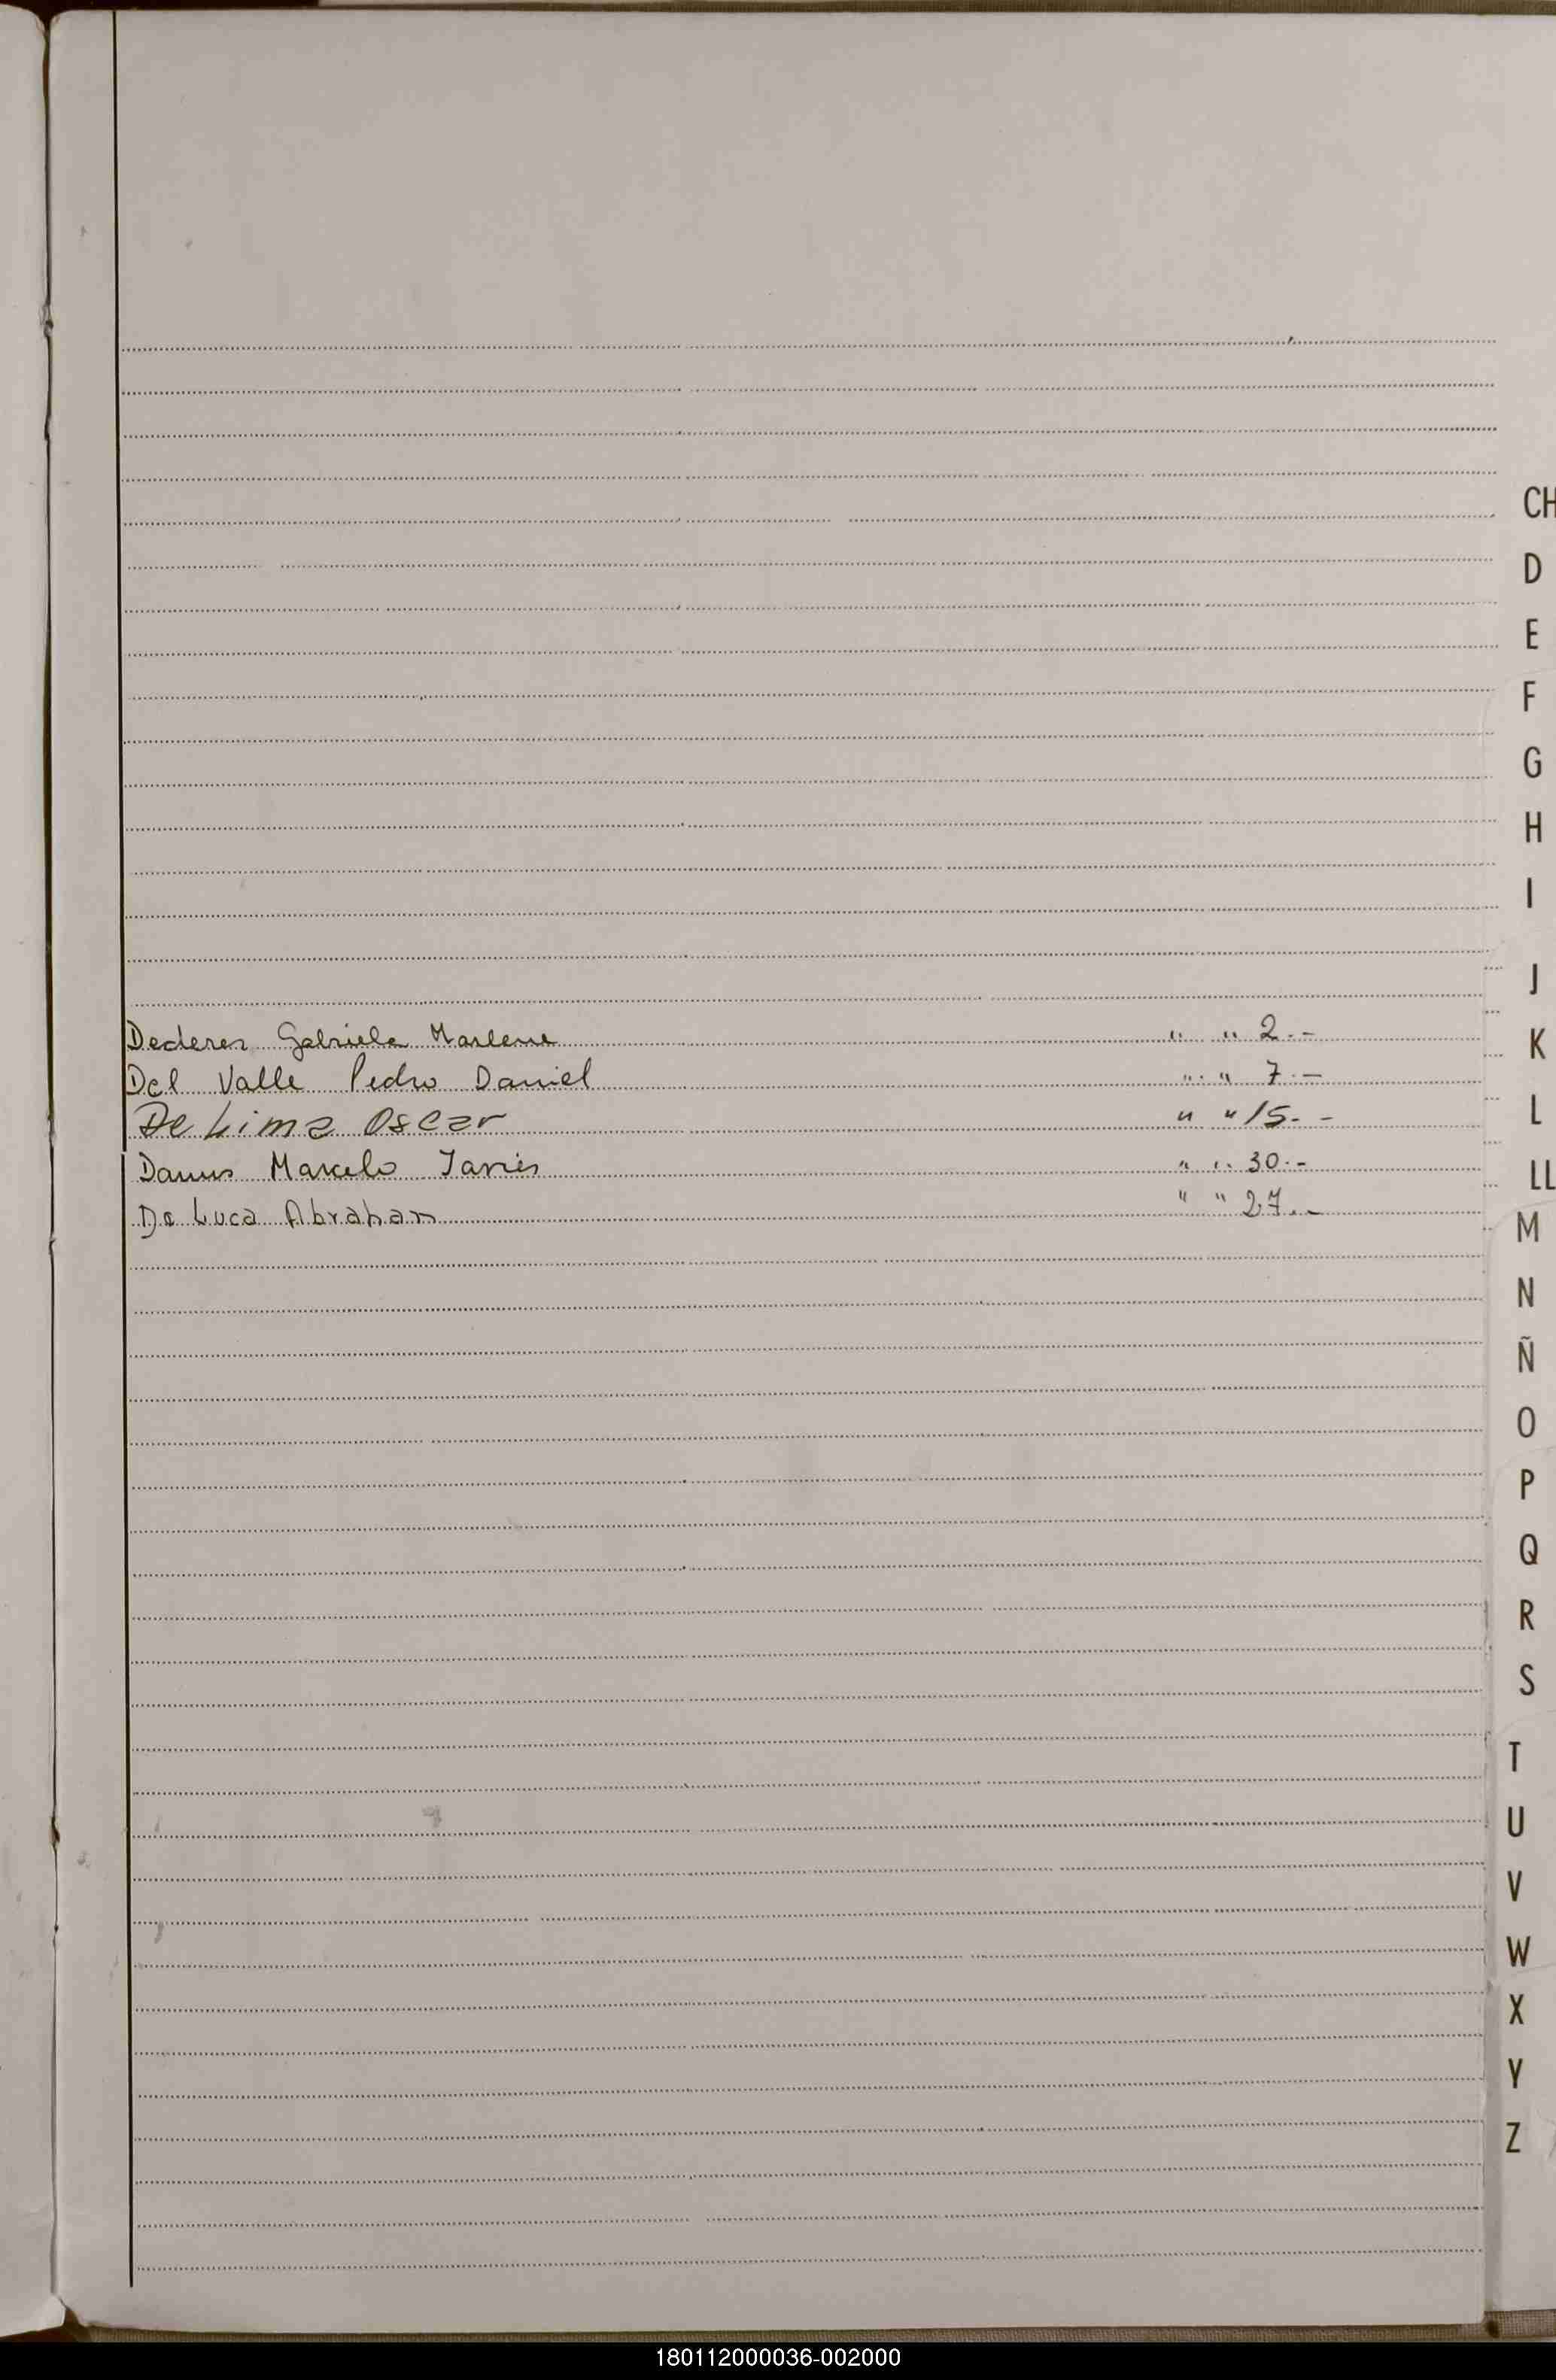 CH
D
E
F
G
H
I
J
Dederer Gabriela Marlene " " 2.-
K
Del Valle Pedro Daniel " " 7.-
De Lima Oscar " " 15.-
L
Marcelo " " 30.-
LL
De Luca Abraham " " 27.-
M
N
Ñ
O
P
Q
R
S
T
U
V
W
X
Y
Z
180112000036-002000